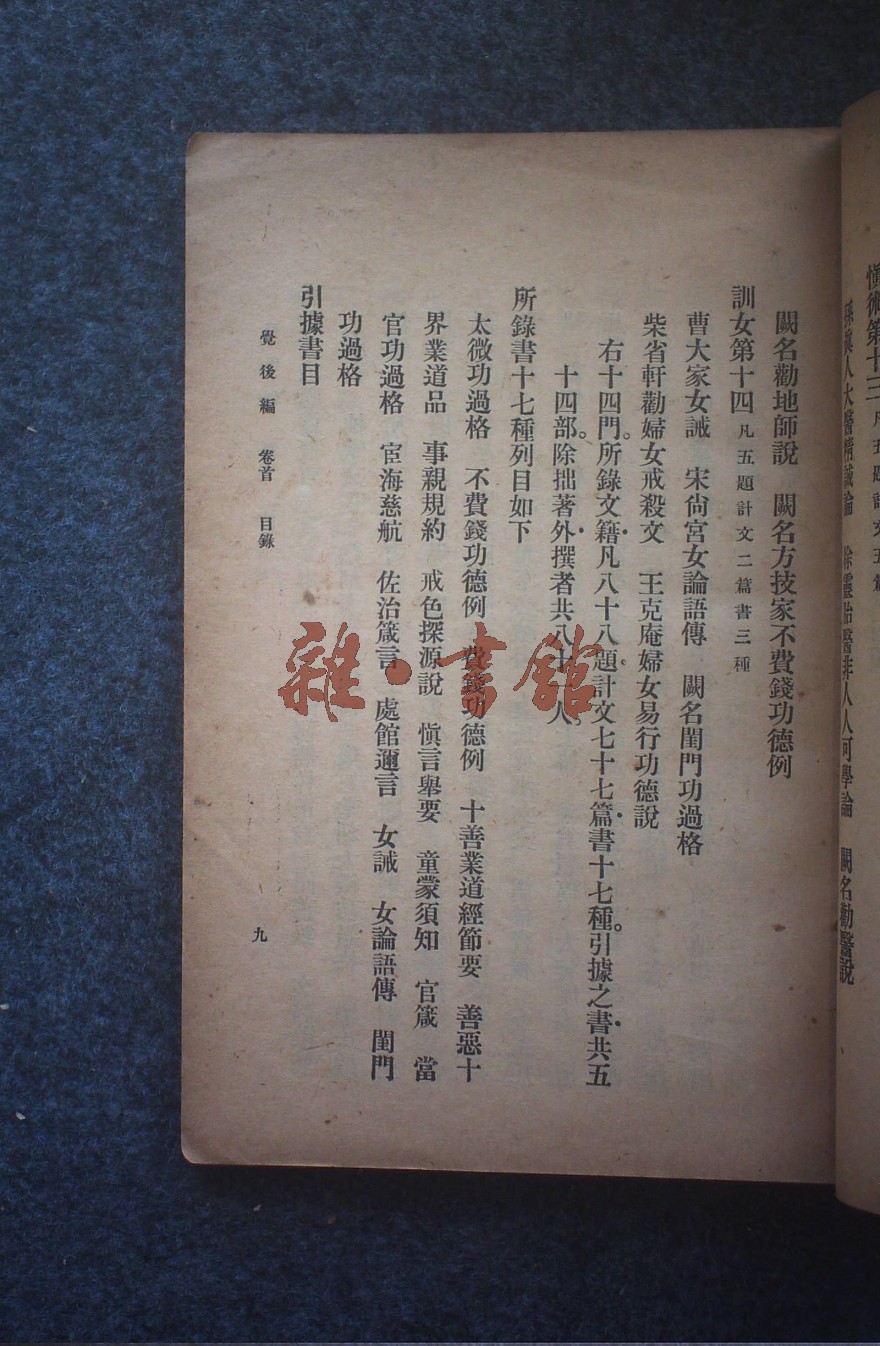 慎術第十三 凡五題計文五篇
孫眞人大醫精誠論　徐靈胎醫非人人可學論　闕名勸醫說
闕名勸地師說　闕名方技家不費錢功德例
訓女第十四 凡五題計文二篇書三種
曹大家女誡　宋尙宮女論語傳　闕名閨門功過格
柴省軒勸婦女戒殺文　王克庵婦女易行功德說
右十四門。所錄文籍凡八十八題計文七十七篇書十七種。引據之書共五
十四部。除拙著外撰者共八十人。
所錄書十七種列目如下
太微功過格　不費錢功德例　費錢功德例　十善業道經節要　善惡十
界業道品　事親規約　戒色探源說　愼言舉要　童蒙須知　官箴　當
官功過格　宦海慈航　佐治箴言　處館邇言　女誡　女論語傳　閨門
功過格
引據書目
覺後編　卷首　目錄
九
雜·書館